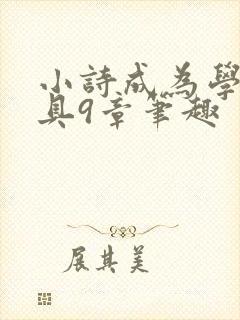 小詩成為學
具9章筆趣
展其美